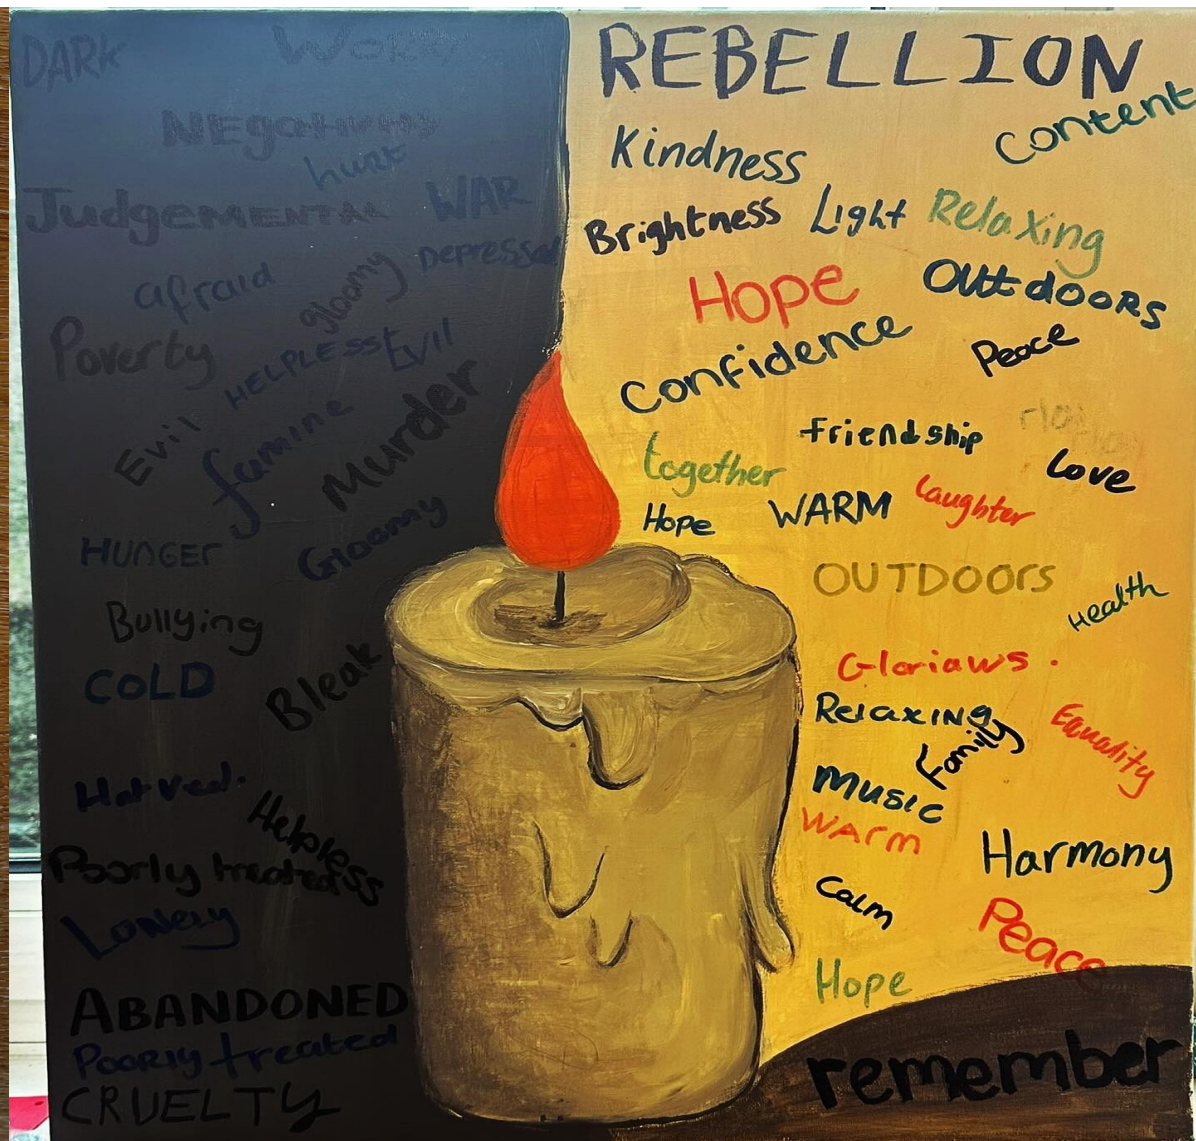 DARK
Worry
NEgativity
hurt
Judgemental
WAR
Depressed
afraid
gloomy
Poverty
HELPLESS
Evil
Evil
famine
Murder
HUNGER
Gloomy
Bullying
COLD
Bleak
Hatred.
Helpless
Poorly treated
Lonely
ABANDONED
Poorly treated
CRUELTY
REBELLION
Content
Kindness
Brightness
Light
Relaxing
Hope
OUtdOORS
Confidence
Peace
friendship
together
Love
Hope
WARM
laughter
OUTDOOrS
Health
Gloriaws.
Relaxing
Family
Equality
Music
WArm
Harmony
Calm
Peace
Hope
remember